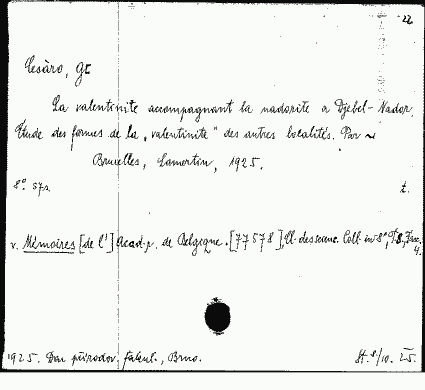 22
Cesàro, G.
La valentinite accompagnant la nadorite a Djebel-Nador.
Étude des formes de la „valentinite" des autres localités. Par ~
Bruxelles, Lamertin, 1925.
8° 57 s. t.
v. Mémoires [de l'] Acad. r. de Belgique. [77578], Cl. des scienc. Coll. in 8°, T. 8, Fasc. 4.
1925. Dar přírodov. fakult., Brno. 25.